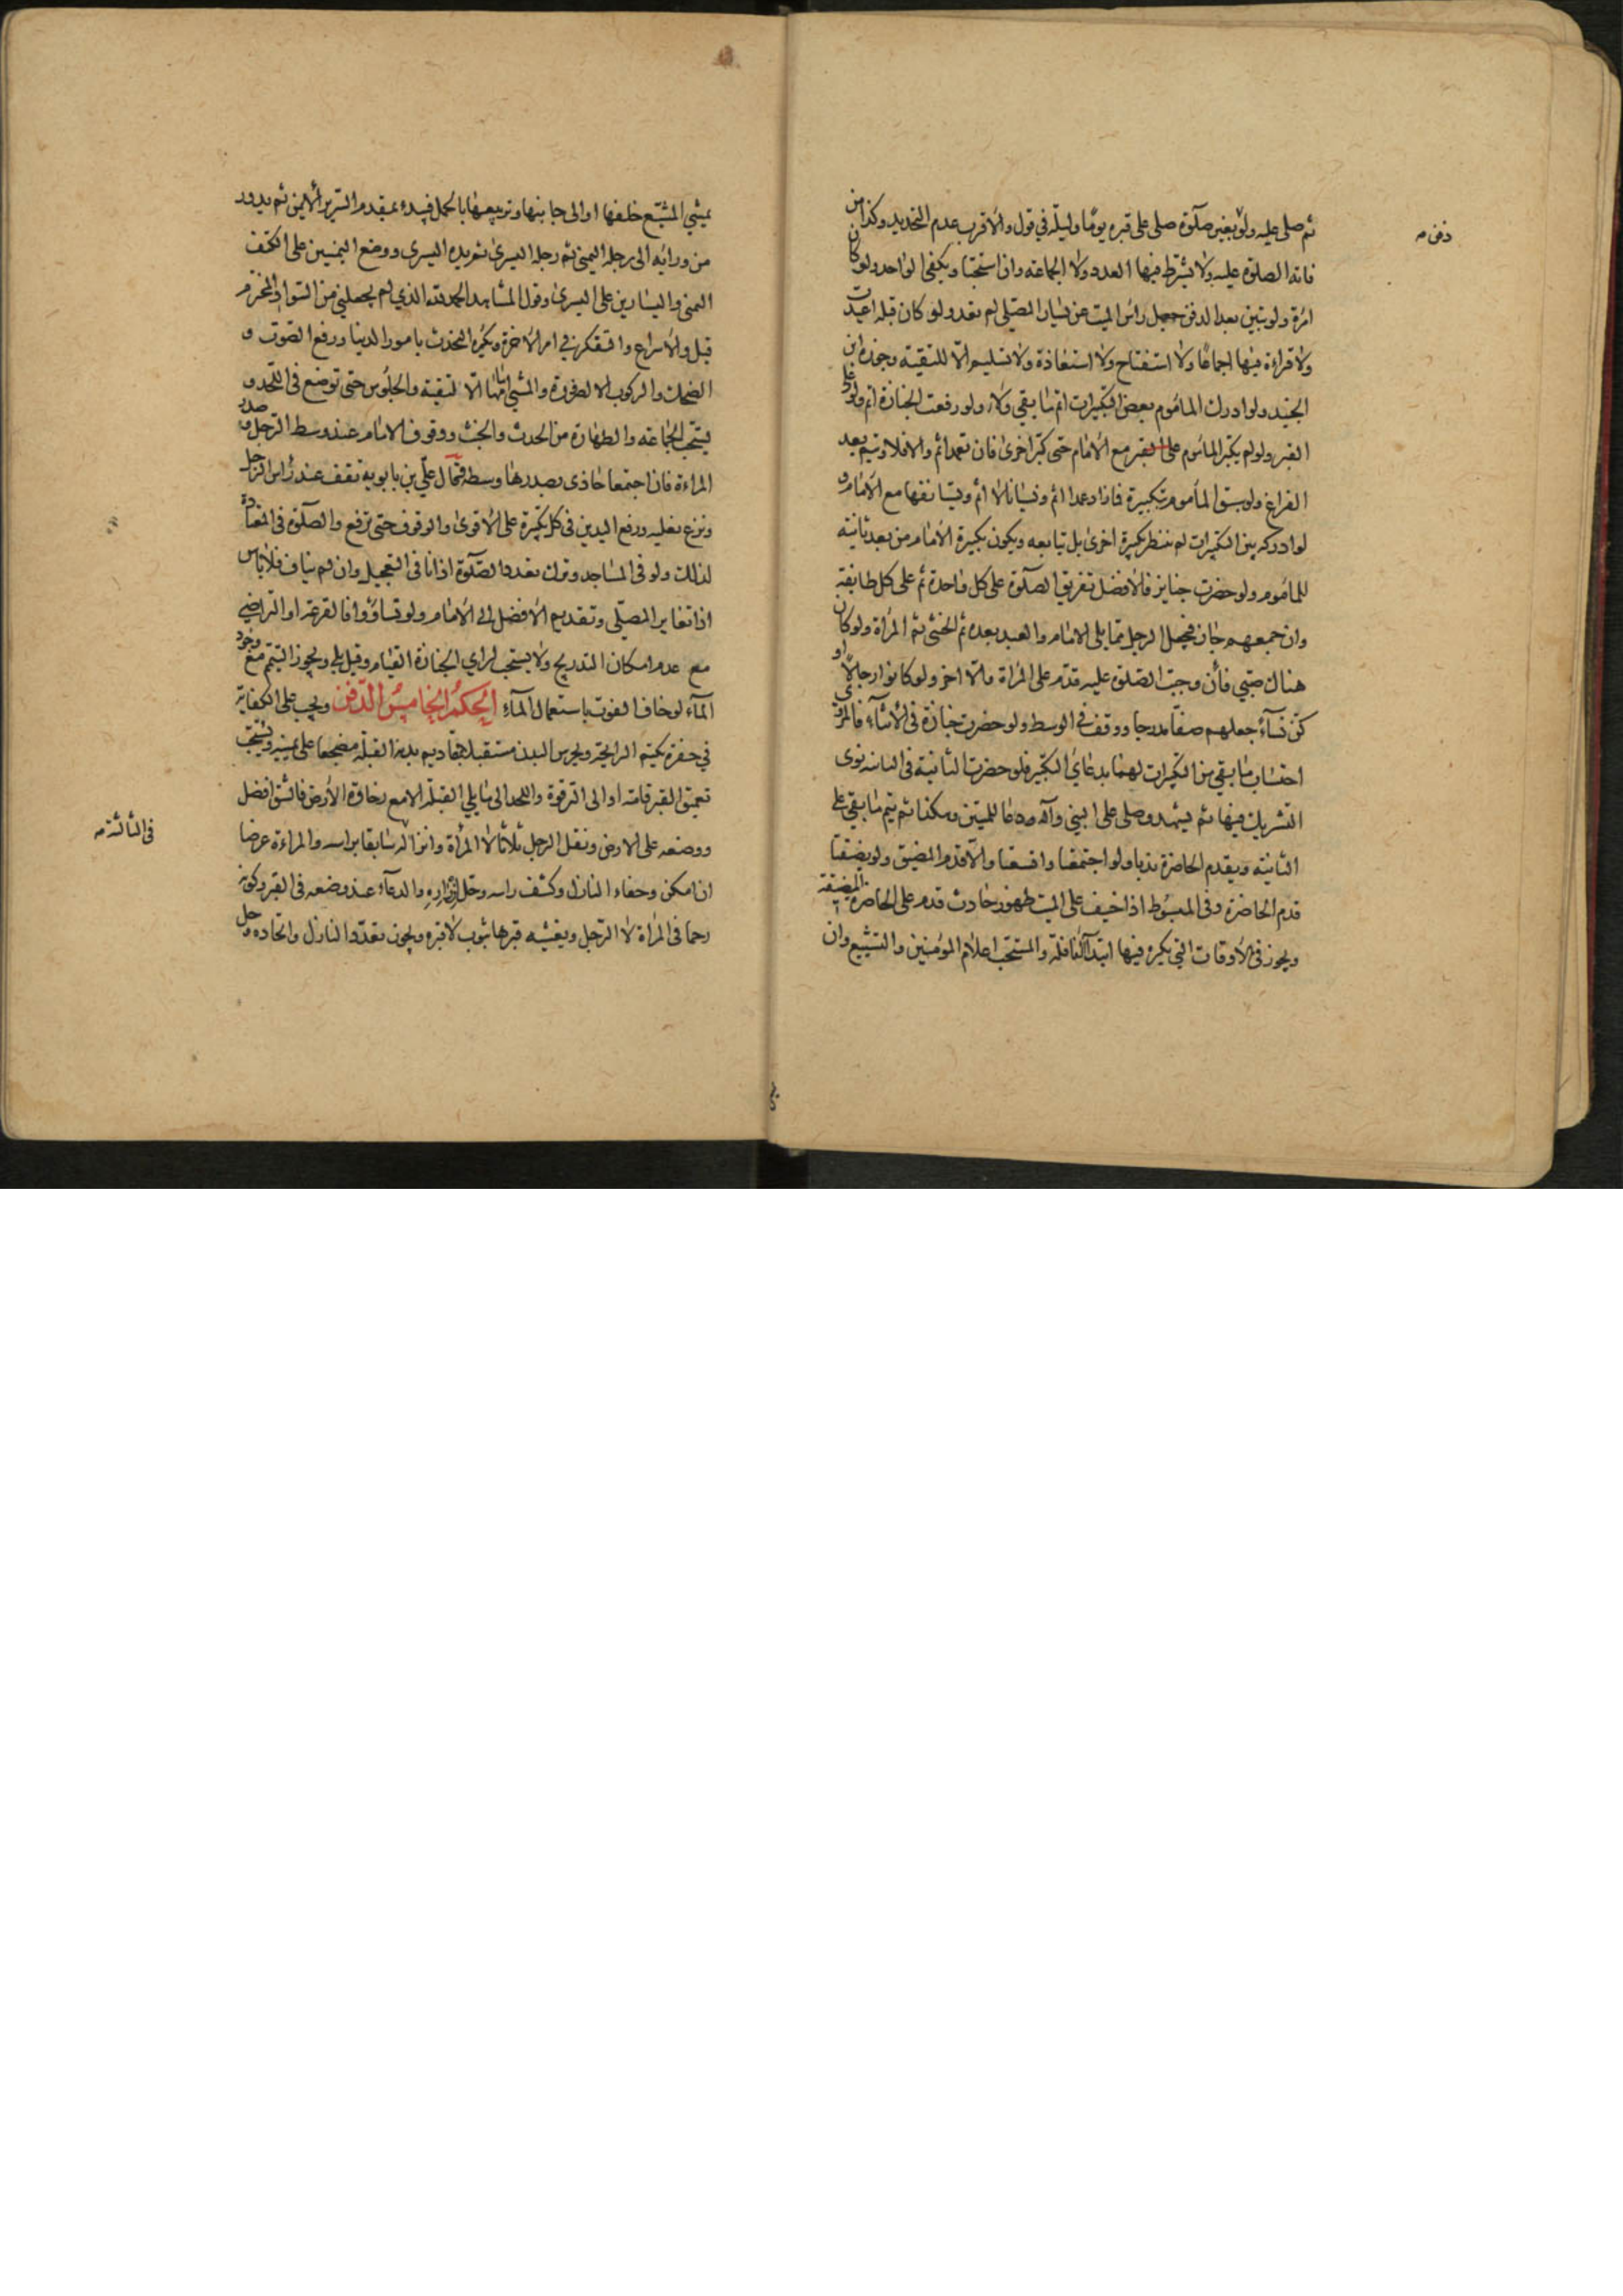 ثم صلى عليه ولو بغير صلوة صلى على قبره يوما وليلة في قول والاقرب عدم التحديد وكذا من
فاته الصلوة عليه ولا يشترط فيها العدد ولا الجماعة وان استحبا ويكفى الواحد ولو كان
امرة ولو تبين بعد الدفن جعل راس الميت عن يسار المصلي لم تعد ولو كان قبله اعيدت
ولا قراءة فيها اجماعا ولا استفتاح ولا استعاذة ولا تسليم الا للتقية وجوزه ابن
الجنيد ولو ادرك الماموم بعض التكبيرات اتم ما بقي ولاء ولو رفعت الجنازة اتم ولو على
القبر ولو لم يكبر الماموم مع الامام حتى كبر اخرى فان تعمد اثم والا فلا ويتم بعد
الفراغ ولو سبق الماموم بتكبيرة فما زاد عمدا اثم ونسيانا لا اثم ويستانفها مع الامام و
لو ادركه بين التكبيرات لم ينتظر تكبيرة اخرى بل تابعه ويكون تكبيرة الامام من بعد ثانية
للماموم ولو حضرت جنايز فالافضل تفريق الصلوة على كل واحدة ثم على كل طايفة
وان جمعهم جاز فيجعل الرجل مما يلى الامام والعبد بعده ثم الخنثى ثم المراة ولو كان
هناك صبي فان وجبت الصلوة عليه قدم على المراة والا اخر ولو كانوا رجالا او
كن نساء جعلهم صفا مدرجا ووقف في الوسط ولو حضرت جنازة في الاثناء فالمروي
احتساب ما بقي من التكبيرات لهما بدعاي التكبير فلو حضرت الثانية في الثانية نوى
التشريك فيها ثم يتشهد وصلى على النبي وآله ودعا للميتين وهكذا ثم يتم ما بقي على
الثانية ويقدم الحاضرة ندبا ولو اجتمعتا واتسعتا والا قدم المضيق ولو تضيقتا
قدم الحاضرة وفي المبسوط اذا خيف على الميت ظهور حادث قدم على الحاضرة المضيقة
ويجوز في الاوقات التي يكره فيها ابتداء النافلة والمستحب اعلام المؤمنين والتشييع وان
يمشي المشيع خلفها او الى جانبها وتربيعها بالحمل فيبدء بمقدم السرير الايمن ثم يدور
من ورائه الى رجله اليمنى ثم رجله اليسرى ثم يده اليسرى ووضع اليمنيين على الكتف
اليمنى واليسارين على اليسرى وقول المشاهد الحمد لله الذي لم يجعلني من السواد المخترم
قبل والاسراع والتفكر في امر الاخرة ويكره التحدث بامور الدنيا ورفع الصوت و
الضحك والركوب الا لضرورة والمشي امامها الا لتقية والجلوس حتى توضع في اللحد و
يستحب الجماعة والطهارة من الحدث والخبث ووقوف الامام عند وسط الرجل وصدر
المراءة فان اجتمعا حاذى بصدرها وسطه فقال علي بن بابويه تقف عند راس الرجل
ونزع نعليه ورفع اليدين في كل تكبيرة على الاقوى والوقوف حتى ترفع والصلوة في المعتادة
لذلك ولو في المساجد وترك تعدد الصلوة اذا نافى التعجيل وان لم يناف فلا باس
اذا تغاير المصلي وتقديم الافضل الى الامام ولو تساووا فالقرعة او التراضي
مع عدم امكان التدريج ولا يستحب لرائي الجنازة القيام وقيل بلى ويجوز التيمم مع وجود
المآء لو خاف الفوت باستعمال المآء الحكم الخامس الدفن ويجب على الكفاية
في حفرة تكتم الرايحة وتحرس البدن مستقبلا بمقاديم بدنه القبلة مضجعا على يمينه ويستحب
تعميق القبر قامة او الى الترقوة واللحد الى ما يلي القبلة الا مع رخاوة الارض فالشق افضل
ووضعه على الارض ونقل الرجل ثلاثا لا المرأة وانزاله سابقا براسه والمراءة عرضا
ان امكن وحفاء النازل وكشف راسه وحل ازراره والدعاء عند وضعه في القبر وكونه
رحما في المراة لا الرجل وتغشيه قبرها بثوب لا قبره ويجوز تعدد النازل واتحاده وحل
دفن
في الثالثة